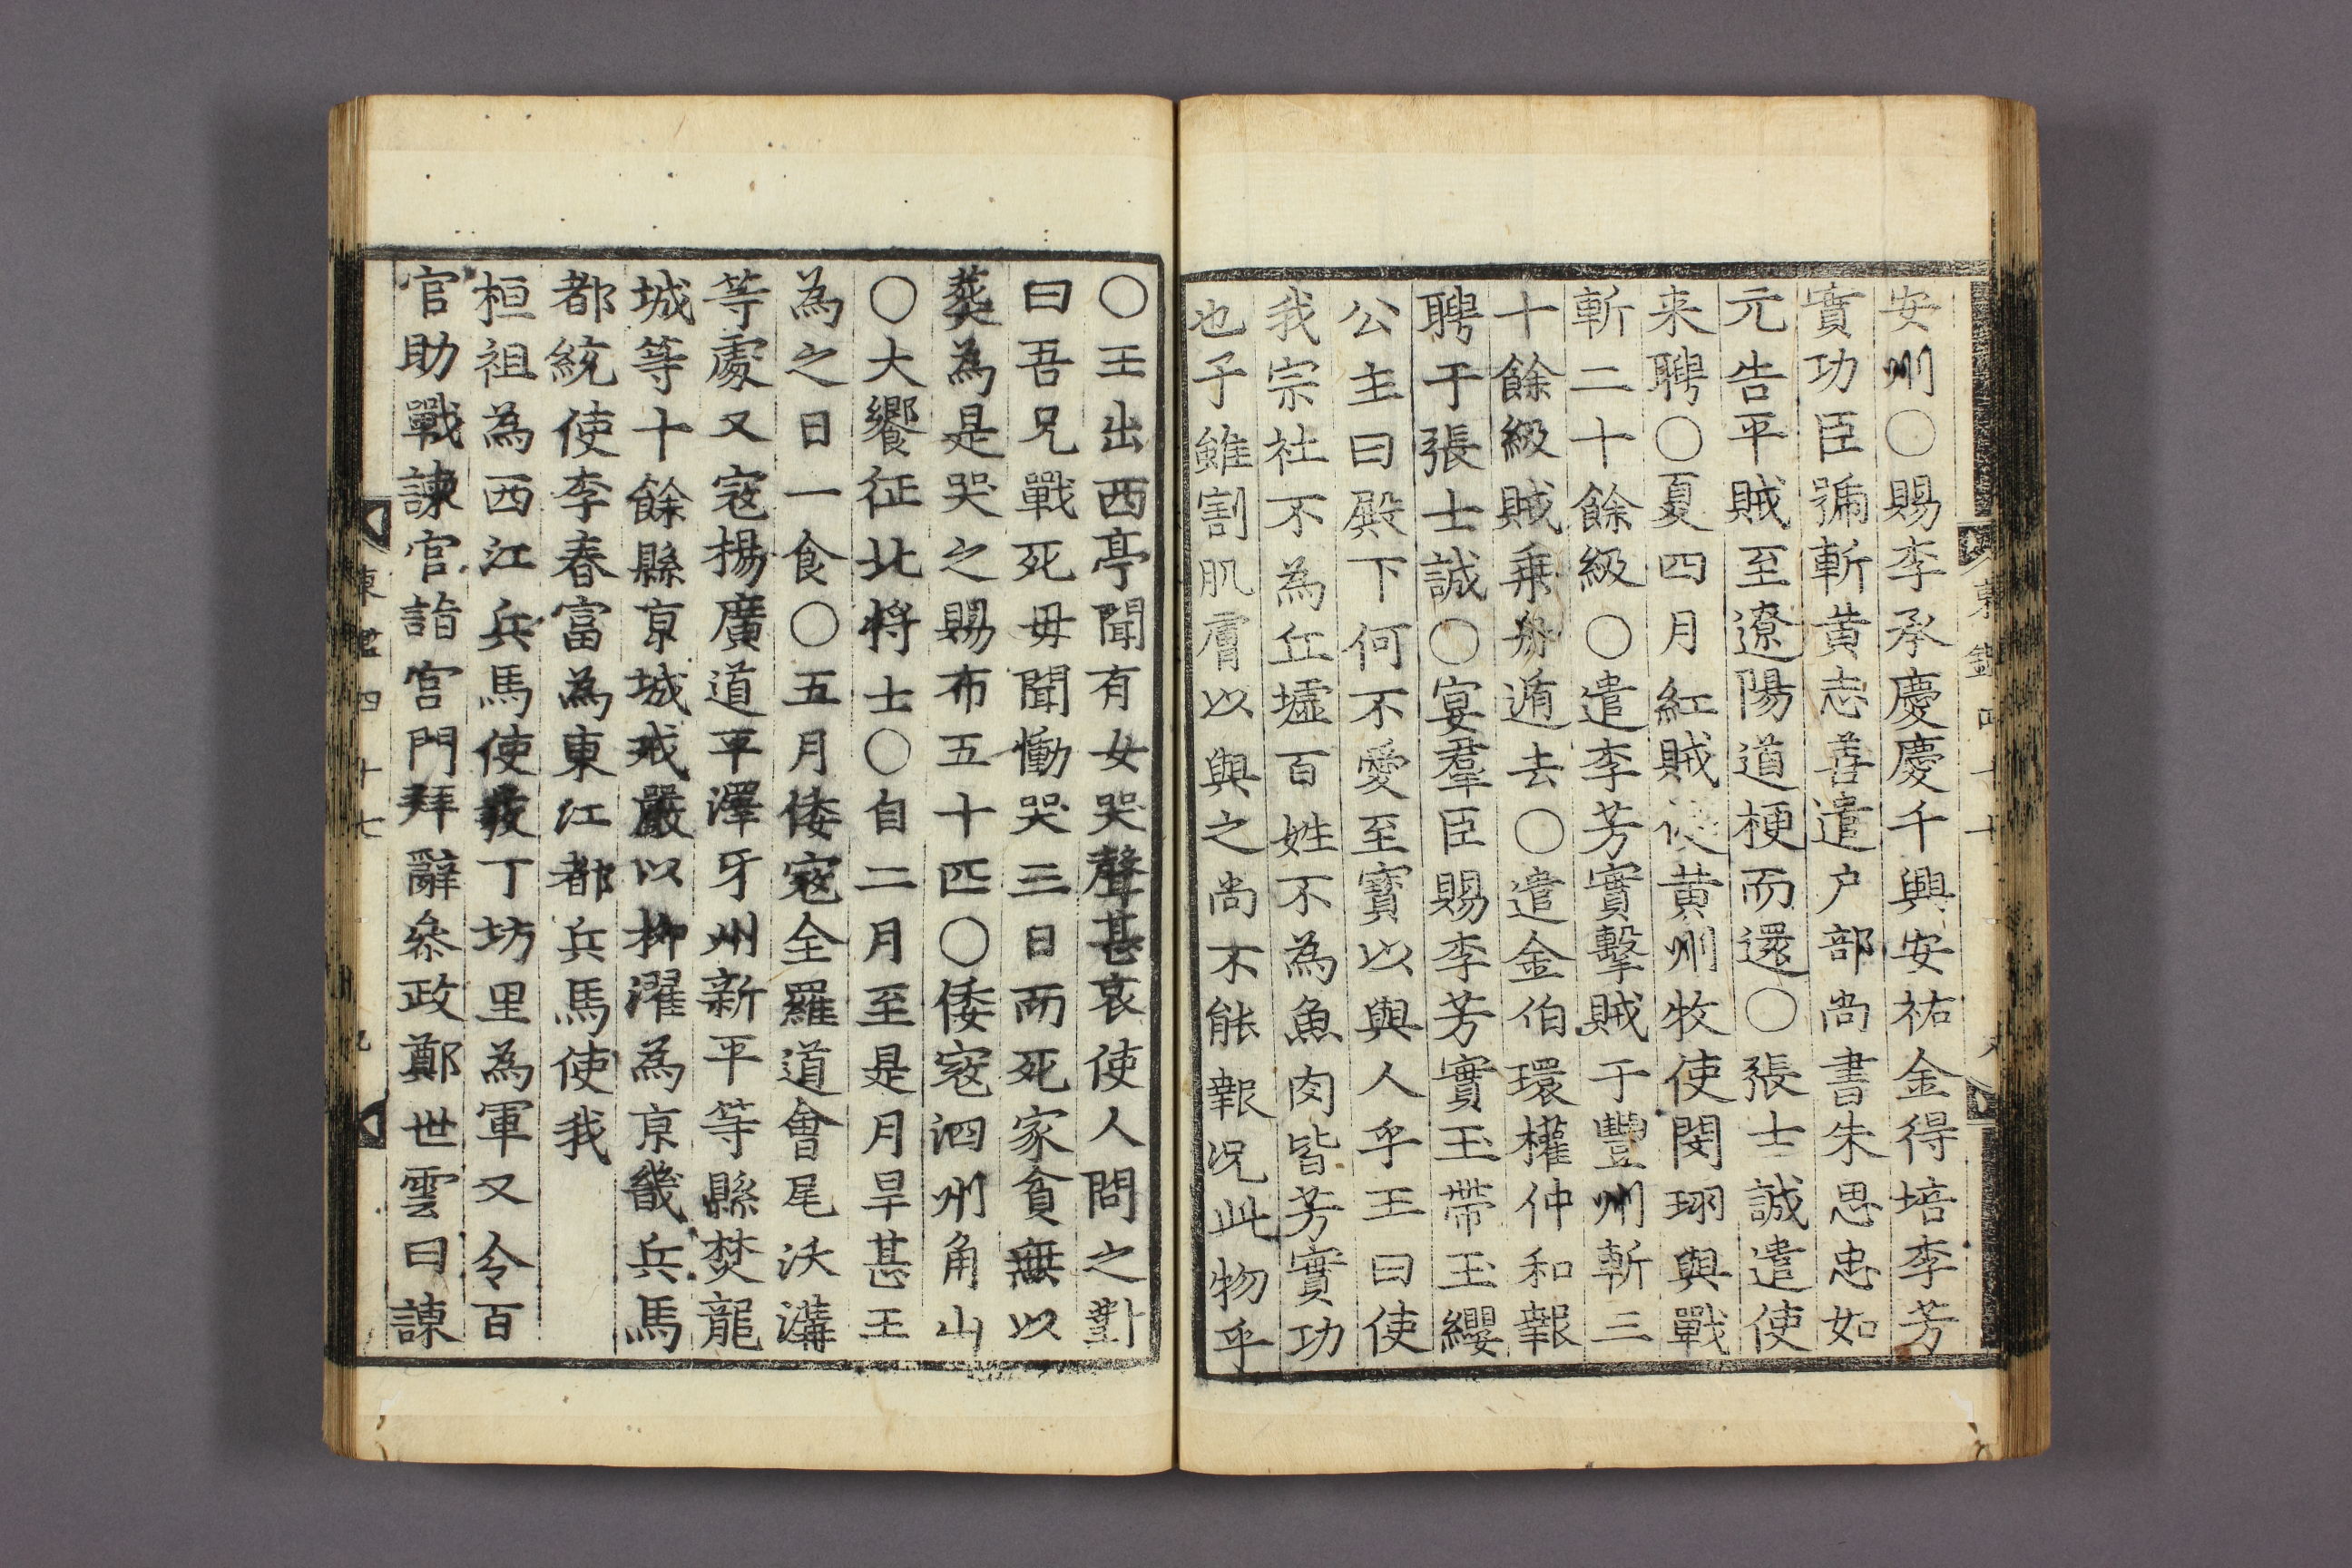 安州○賜李承慶慶千興安祐金得培李芳
實功臣號斬黄志善遣户部尚書朱思忠如
元告平賊至遼陽道梗而還○張士誠遣使
来聘○夏四月紅賊黄州牧使閔珝與戰
斬二十餘級○遣李芳實擊賊于豐州斬三
十餘級賊乗舟遁去○遣金伯環權仲和報
聘于張士誠○宴羣臣賜李芳實玉帶玉纓
公主曰殿下何不愛至寳以與人乎王曰使
我宗社不為丘墟百姓不為魚肉皆芳實功
也予雖割肌膚以與之尚不能報况此物乎
東鑑四十七
○王出西亭聞有女哭聲甚哀使人問之對
曰吾兄戰死毋聞慟哭三日而死家貧無以
葬為是哭之賜布五十匹○倭寇泗州角山
○大饗征北將士○自二月至是月旱甚王
為之日一食○五月倭寇全羅道會尾沃溝
等處又寇楊廣道平澤牙州新平等縣焚龍
城等十餘縣京城戒嚴以柳濯為京畿兵馬
都統使李春富為東江都兵馬使我
桓祖為西江兵馬使發丁坊里為軍又令百
官助戰諫官詣宮門拜辭叅政鄭世雲曰諫
東鑑四十七 九